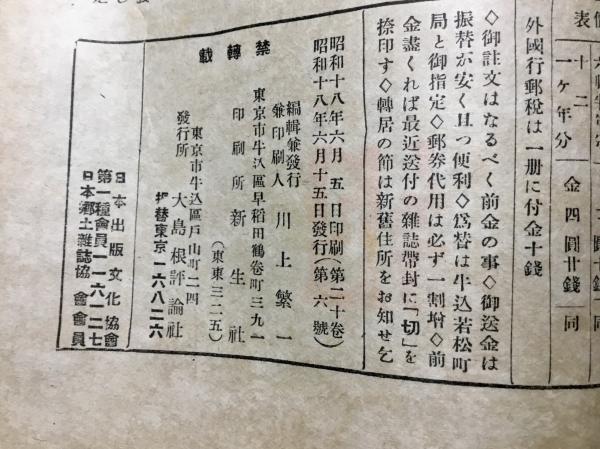 表
十二
一ケ年分
金四圓廿錢
同
外國行郵稅は一冊に付金十錢
◇御註文はなるべく前金の事◇御送金は
振替が安く且つ便利◇爲替は牛込若松町
局と御指定◇郵券代用は必ず一割增◇前
金盡くれば最近送付の雜誌帶封に「切」を
捺印す◇轉居の節は新舊住所をお知せ乞
昭和十八年六月五日印刷(第二十卷)
昭和十八年六月十五日發行(第六號)
禁轉載
編輯兼發行
兼印刷人 川上繁一
東京市牛込區早稻田鶴卷町三九一
印刷所 新生社
(東東三二二五)
東京市牛込區戶山町二四
發行所 大島根評論社
振替東京一六八二六
日本出版文化協會
第一種會員一一六一二七
日本鄕土雜誌協會會員